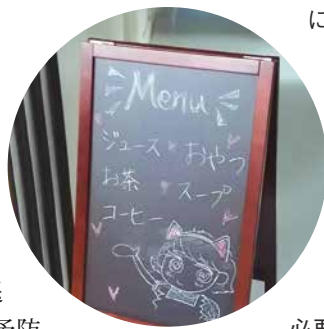 に
Menu
ジュース おやつ
お茶 スープ
コーヒー
予防
必要